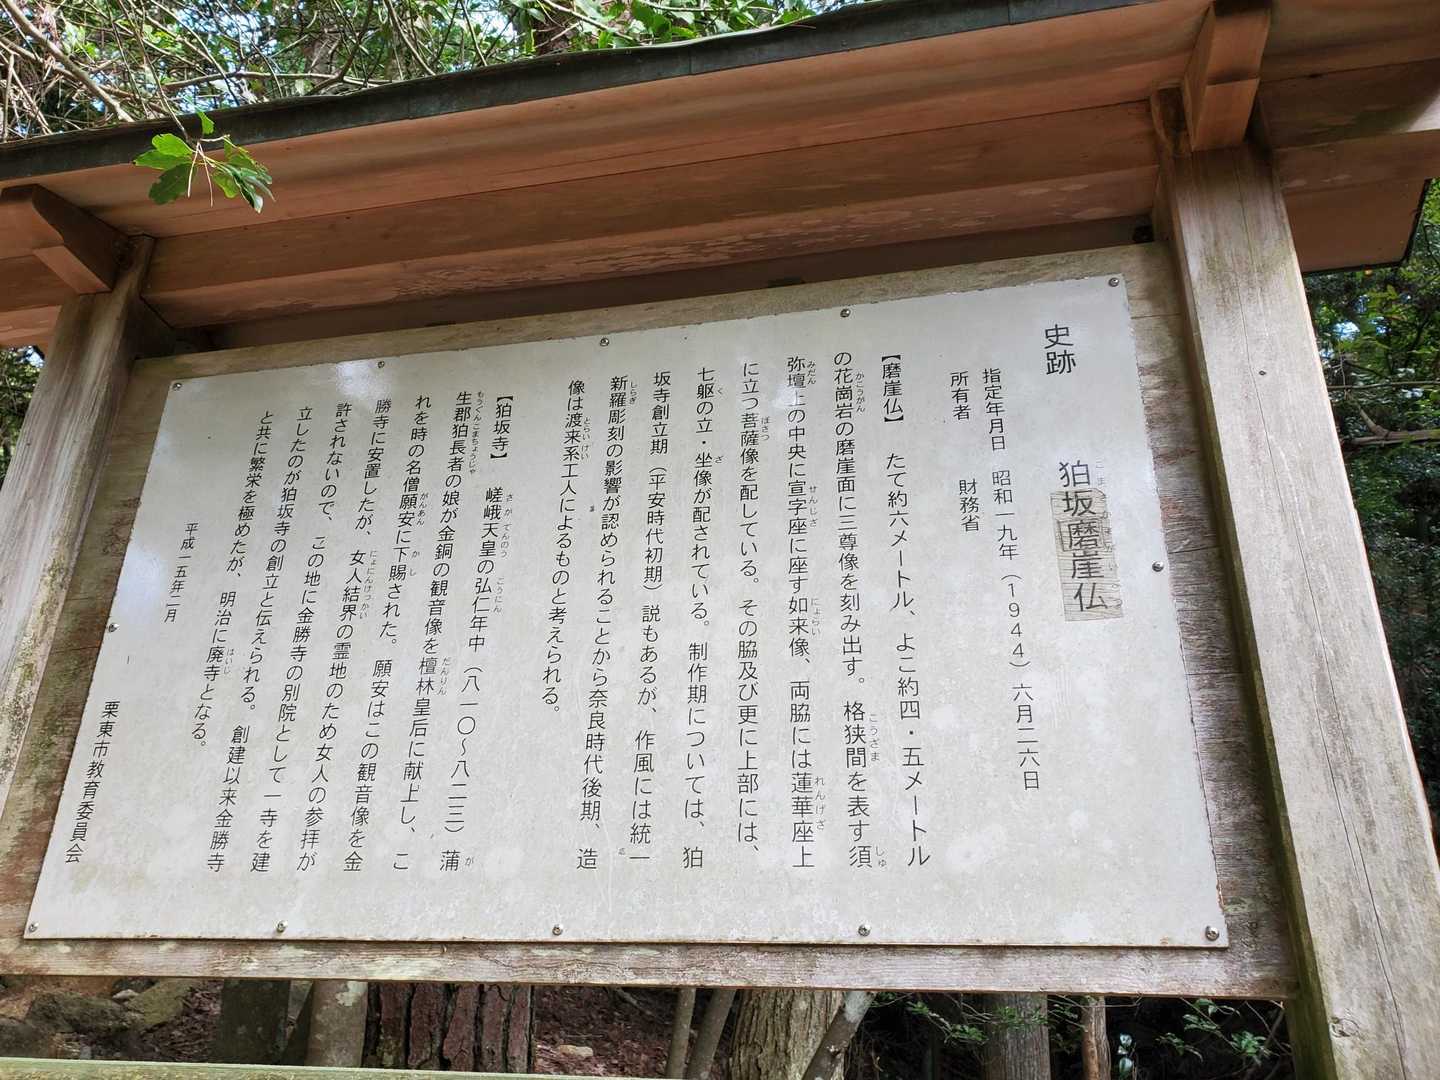 史跡　狛坂磨崖仏
指定年月日　昭和一九年（１９４４）六月二六日
所有者　財務省
【磨崖仏】　たて約六メートル、よこ約四・五メートル
の花崗岩の磨崖面に三尊像を刻み出す。格狭間を表す須
弥壇上の中央に宣字座に座す如来像、両脇には蓮華座上
に立つ菩薩像を配している。その脇及び更に上部には、
七躯の立・坐像が配されている。制作期については、狛
坂寺創立期（平安時代初期）説もあるが、作風には統一
新羅彫刻の影響が認められることから奈良時代後期、造
像は渡来系工人によるものと考えられる。
【狛坂寺】　嵯峨天皇の弘仁年中（八一〇～八二三）蒲
生郡狛長者の娘が金銅の観音像を檀林皇后に献上し、こ
れを時の名僧願安に下賜された。願安はこの観音像を金
勝寺に安置したが、女人結界の霊地のため女人の参拝が
許されないので、この地に金勝寺の別院として一寺を建
立したのが狛坂寺の創立と伝えられる。創建以来金勝寺
と共に繁栄を極めたが、明治に廃寺となる。
平成一五年二月
栗東市教育委員会